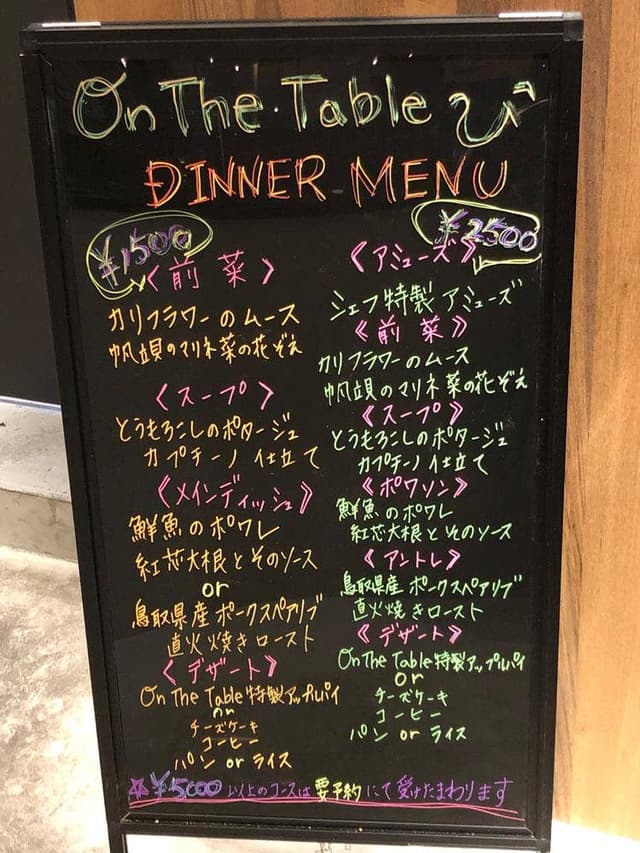 On The Table び
DINNER MENU
¥1500
〈前菜〉
カリフラワーのムース
帆立貝のマリネ菜の花ぞえ
〈スープ〉
とうもろこしのポタージュ
カプチーノ仕立て
〈メインディッシュ〉
鮮魚のポワレ
紅芯大根とそのソース
or
鳥取県産ポークスペアリブ
直火焼きロースト
〈デザート〉
On The Table特製アップルパイ
or
チーズケーキ
コーヒー
パン or ライス
¥2500
《アミューズ》
シェフ特製アミューズ
《前菜》
カリフラワーのムース
帆立貝のマリネ菜の花ぞえ
〈スープ〉
とうもろこしのポタージュ
カプチーノ仕立て
〈ポワソン〉
鮮魚のポワレ
紅芯大根とそのソース
〈アントレ〉
鳥取県産ポークスペアリブ
直火焼きロースト
〈デザート〉
On The Table特製アップルパイ
or
チーズケーキ
コーヒー
パン or ライス
☆¥5000以上のコースは要予約にて受けたまわります